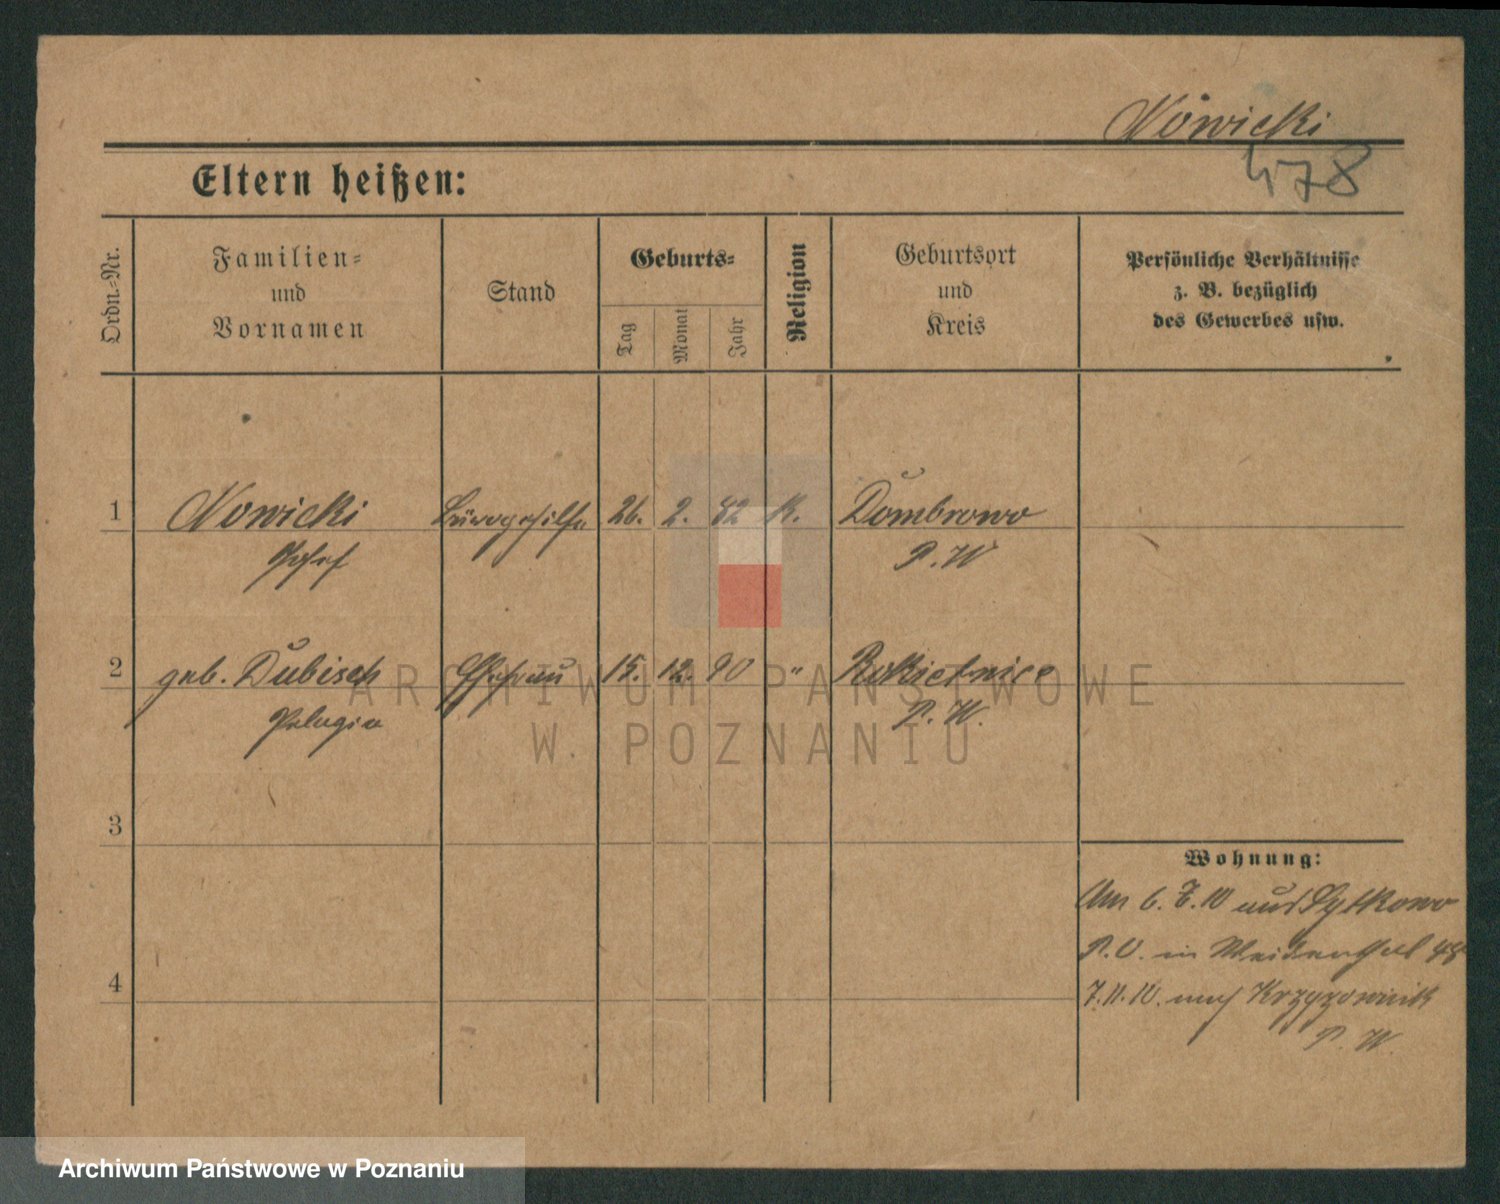 Nowicki
478
Eltern heißen:
Ordn.-Nr.
Familien-
und
Vornamen
Stand
Geburts-
Tag
Monat
Jahr
Religion
Geburtsort
und
Kreis
Persönliche Verhältnisse
z. B. bezüglich
des Gewerbes usw.
1 Nowicki Bürogehilfe 26. 2. 82 K. Dombrowo
Josef P. W
2 geb. Dubisch Ehefrau 15. 12. 90 " Rokietnice
Pelagia P. W.
3
4
Wohnung:
Am 6. 7. 10 aus Sytkowo
P. O. in 48
7. 11. 10. nach Krzyzownik
P. W.
ARCHIWUM PAŃSTWOWE
W POZNANIU
Archiwum Państwowe w Poznaniu